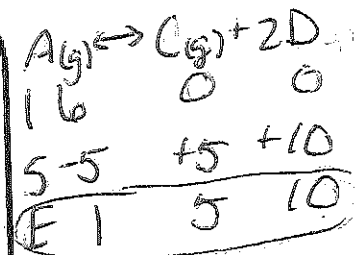 A(g) ↔ C(g) + 2D
I 6 0 0
5 -5 +5 +10
E 1 5 10